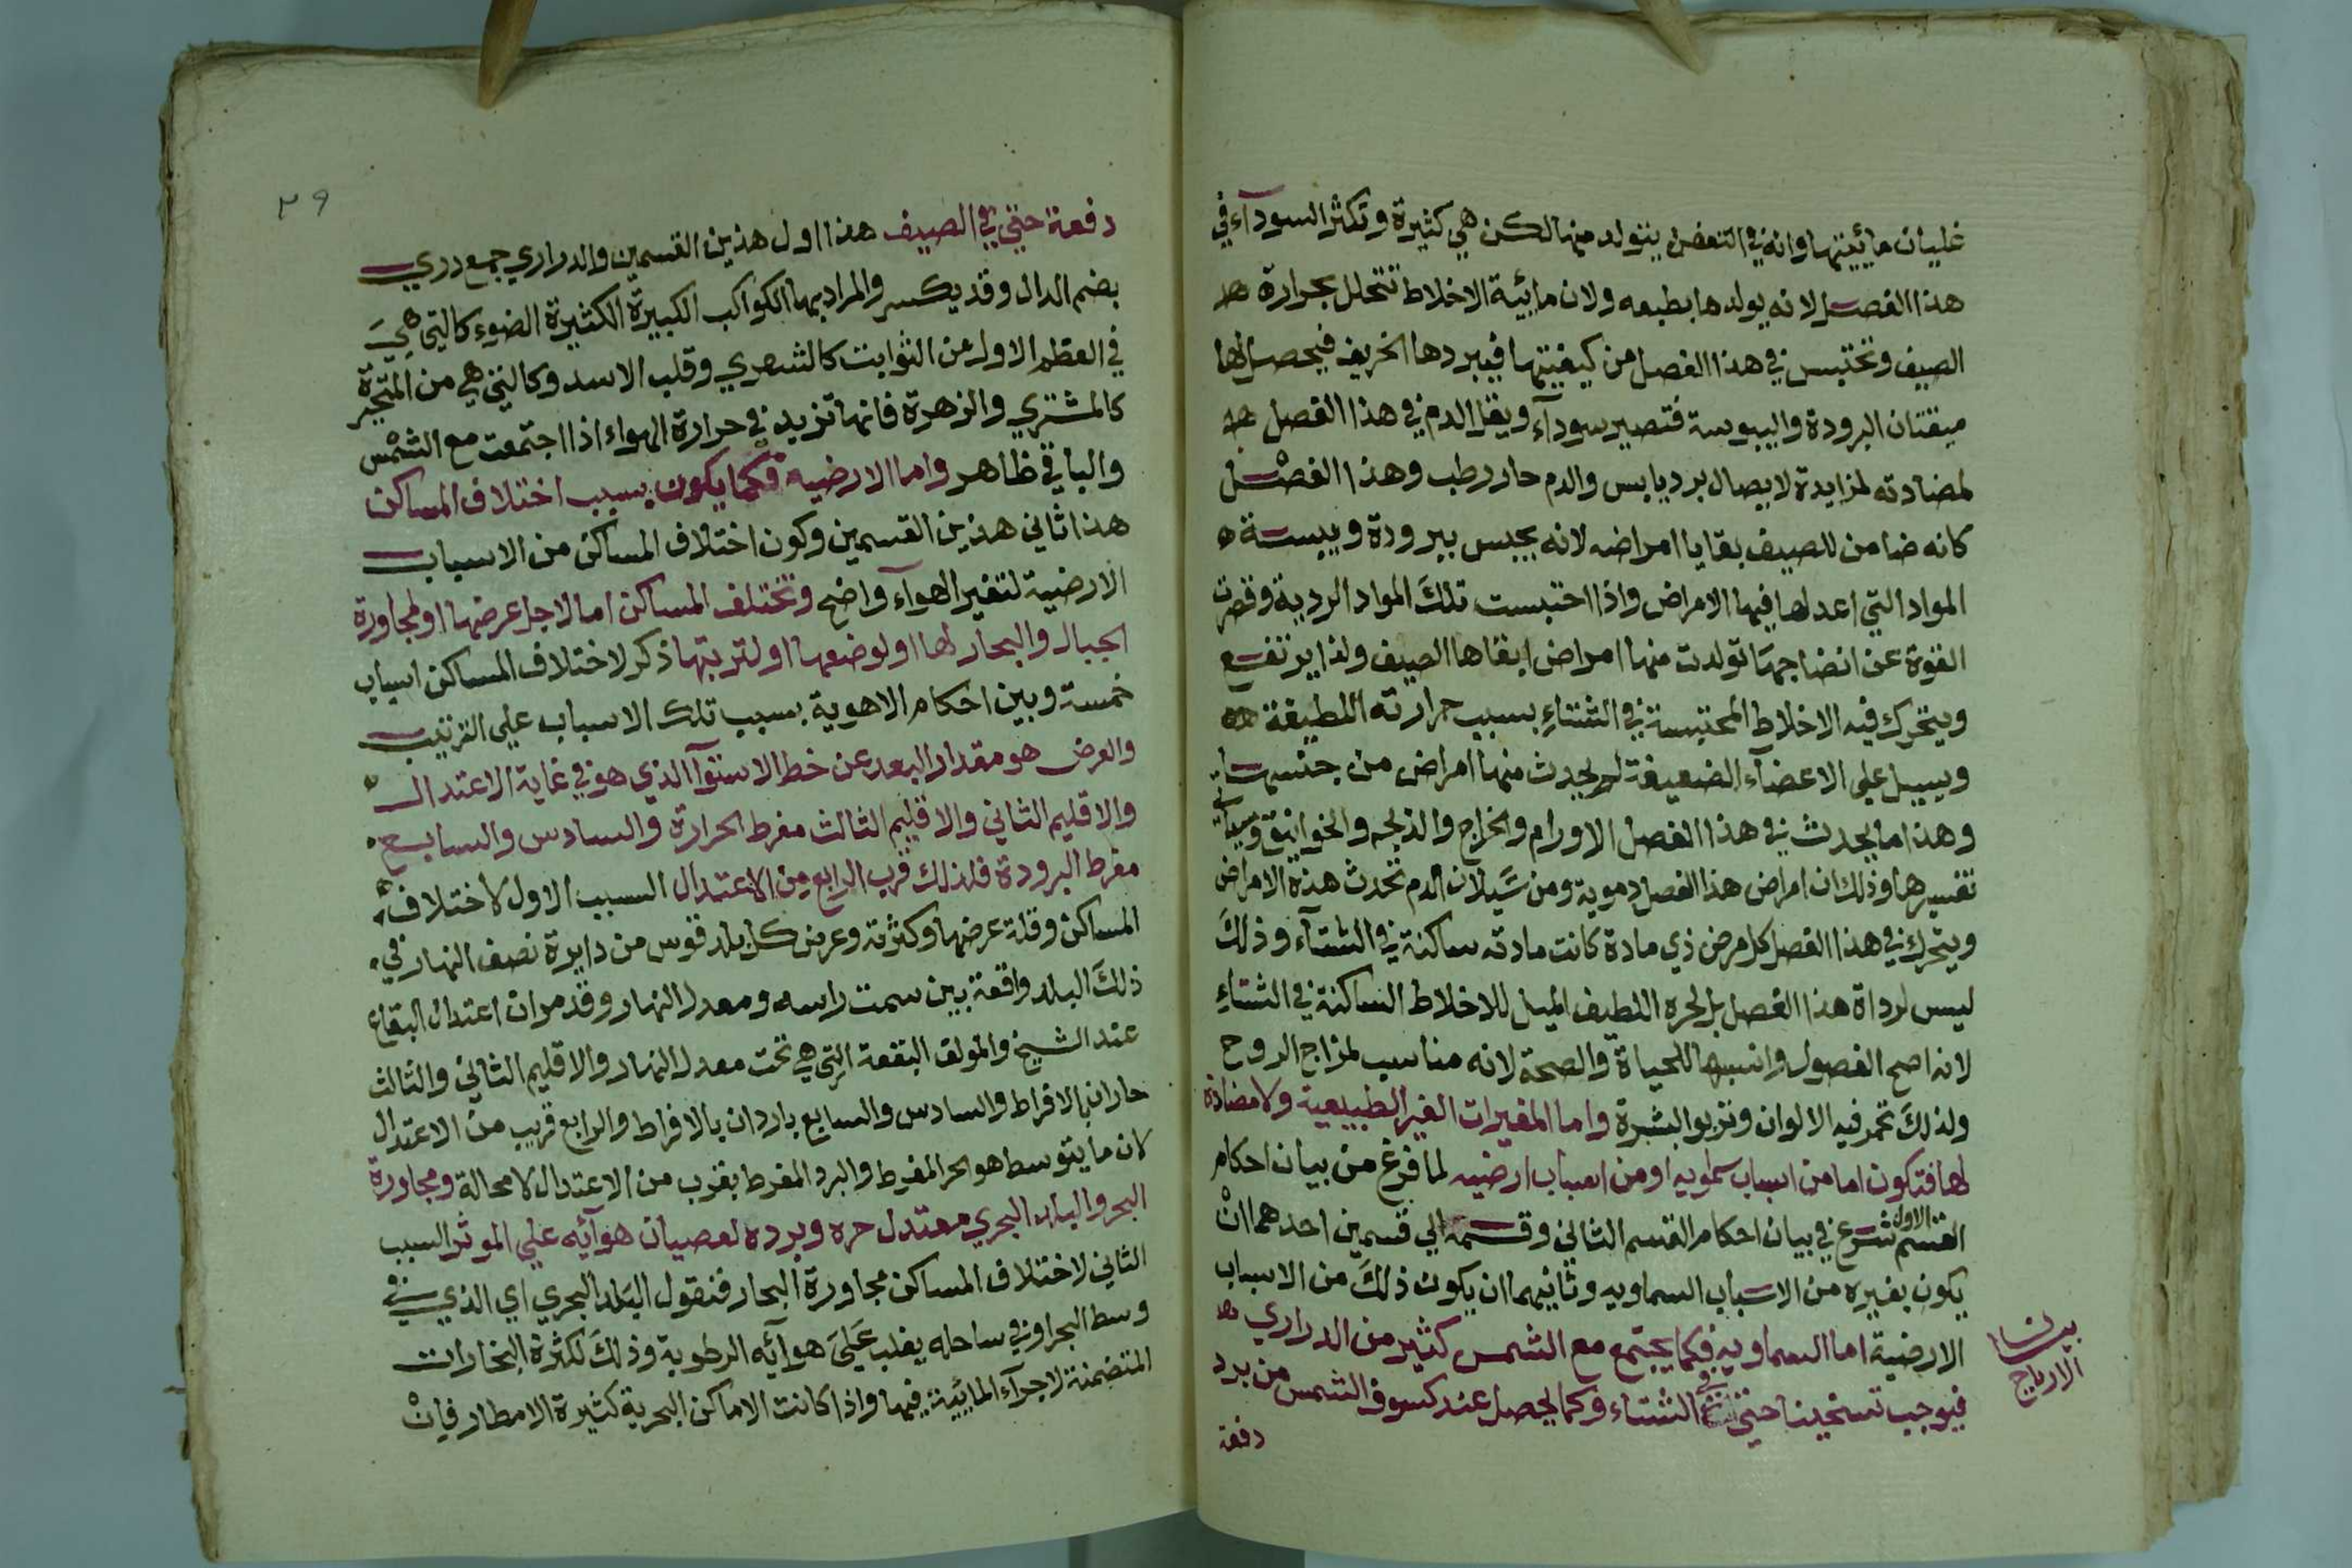 غليان مائيتها وانه في التعفن يتولد منها لكن هي كثيرة وتكثر السودآء في
هذا الفصل لانه يولدها بطبعه ولان مائية الاخلاط تتحلل بحرارة
الصيف وتحتبس في هذا الفصل من كيفيتها فيبردها الخريف فيحصل لها
البرودة واليبوسة فتصير سودآء ويقل الدم في هذا الفصل
لمضادته لمزايدة لايصال برد يابس والدم حار رطب وهذا الفصل
كانه ضامن للصيف بقايا امراضه لانه يحبس ببرودة ويبسة
المواد التي اعد لها فيها الامراض واذا احتبست تلك المواد الردية وقصرت
القوة عن انضاجها تولدت منها امراض ابقاها الصيف ولذا يرتفع
ويتحرك فيه الاخلاط المحتبسة في الشتاء بسبب حرارته اللطيفة
ويسيل على الاعضآء الضعيفة يحدث منها امراض من جنسها
وهذا ما يحدث في هذا الفصل الاورام والخراج والذبحه والخوانيق
تفسيرها وذلك ان امراض هذا الفصل دموية ومن سيلان الدم تحدث هذه الامراض
ويتحرك في هذا الفصل كل مرض ذي مادة كانت مادته ساكنة في الشتآء وذلك
ليس لرداة هذا الفصل بل لحره اللطيف الميل للاخلاط الساكنة في الشتاء
لانه اصح الفصول وانسبها للحياة والصحة لانه مناسب لمزاج الروح
ولذلك تحمر فيه الالوان وتربو البشرة واما المغيرات الغير الطبيعية ولا مضادة
لها فتكون اما من اسباب سماويه او من اسباب ارضيه لما فرغ من بيان احكام
القسم الاول شرع في بيان احكام القسم الثاني وقسمه الي قسمين احدهما ان
يكون تغيره من الاسباب السماويه وثانيهما ان يكون ذلك من الاسباب
الارضية اما السماويه فكما يجتمع مع الشمس كثير من الدراري
فيوجب تسخينا حتى في الشتاء وكما يحصل عند كسوف الشمس من برد
دفعة
٢٩
دفعة حتي في الصيف هذا اول هذين القسمين والدراري جمع دري
بضم الدال وقد يكسر والمراد بها الكواكب الكبيرة الكثيرة الضوء كالتي هي
في العظم الاول من الثوابت كالشعري وقلب الاسد وكالتي هي من المتحيرة
كالمشتري والزهرة فانها تزيد في حرارة الهواء اذا اجتمعت مع الشمس
والباقي ظاهر واما الارضيه فكما يكون بسبب اختلاف المساكن
هذا ثاني هذين القسمين وكون اختلاف المساكن من الاسباب
الارضية لتغير الهوآء واضح وتختلف المساكن اما لاجل عرضها او لمجاورة
الجبال والبحار لها او لوضعها او لتربتها ذكر لاختلاف المساكن اسباب
خمسة وبين احكام الاهوية بسبب تلك الاسباب علي الترتيب
والعرض هو مقدار البعد عن خط الاستوآ الذي هو في غاية الاعتدال
والاقليم الثاني والاقليم الثالث مفرط الحرارة والسادس والسابع
مفرط البرودة فلذلك قرب الرابع من الاعتدال السبب الاول لاختلاف
المساكن وقلة عرضها وكثرته وعرض كل بلد قوس من دايرة نصف النهار في
ذلك البلد واقعة بين سمت راسه ومعدل النهار وقد مر ان اعتدال البقاع
عند الشيخ والمولف البقعة التي هي تحت معدل النهار والاقليم الثاني والثالث
حاران بالافراط والسادس والسابع باردان بالافراط والرابع قريب من الاعتدال
لان ما يتوسط هو الحر المفرط والبرد المفرط يقرب من الاعتدال لا محالة ومجاورة
البحر والبلد البحري معتدل حره وبرده لعصيان هوآئه علي الموثر السبب
الثاني لاختلاف المساكن مجاورة البحار فنقول البلد البحري اي الذي في
وسط البحر او في ساحله يغلب علي هوآئه الرطوبة وذلك لكثرة البخارات
المتضمنة لاجزآء المائية فيها واذا كانت الاماكن البحرية كثيرة الامطار فان